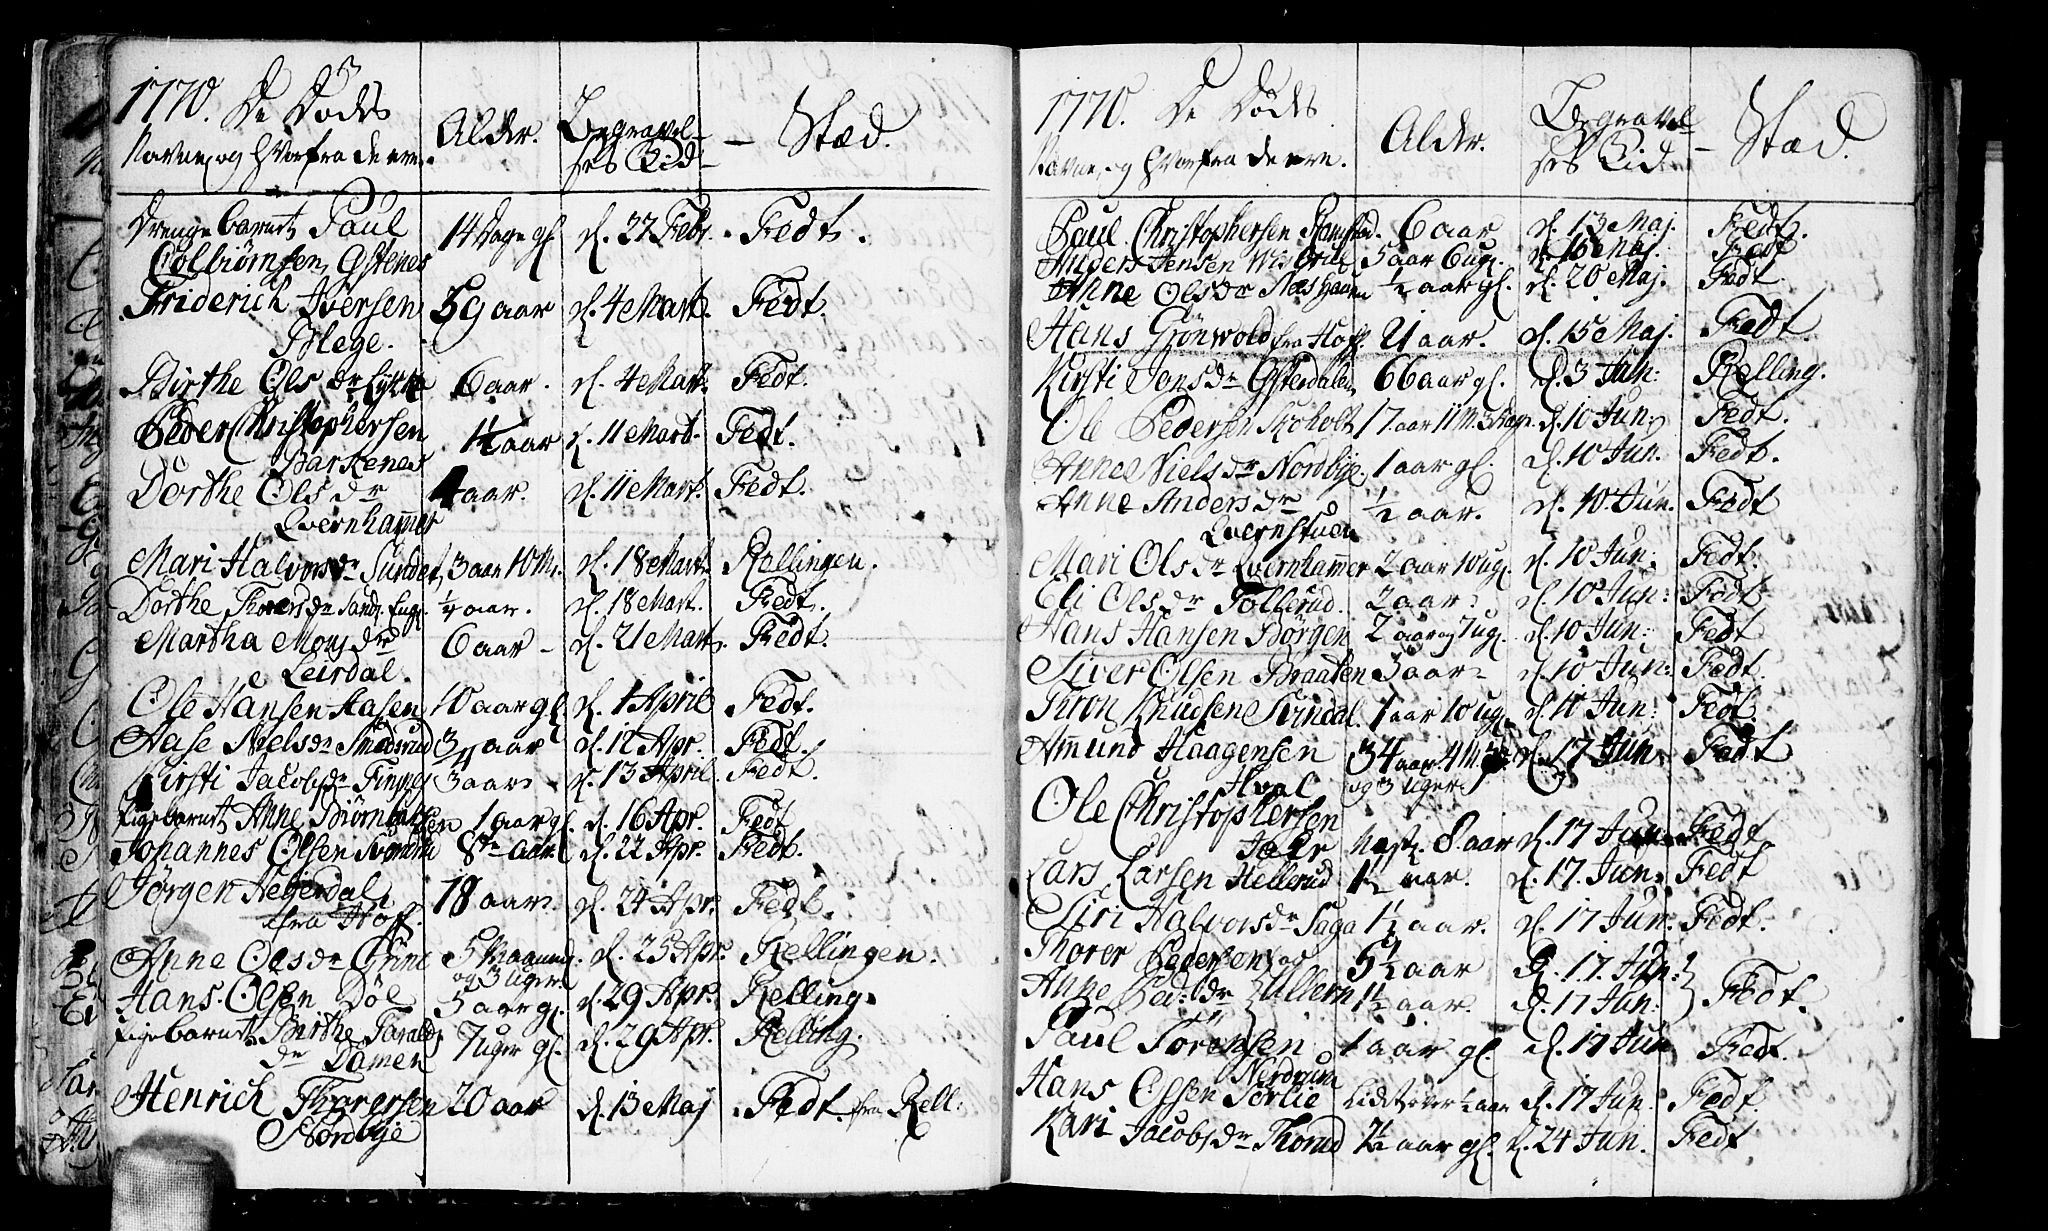 1770. De Dødes
Navne, og hvorfra de ere.
Alder.
Begravel-
ses Tid
Stæd.
Drengebarnet Paul 14 Dage gl. d. 27 Febr. Fedt.
Colbiørnsen, Østenes
Friderich Iversen 59 aar d. 4 Mart. Fedt.
Blege.
Birthe Ols dr Lykke 6 aar. d. 4 Mart. Fedt.
Peder Christophersen 1½ aar d. 11 Mart. Fedt.
Barkenes
Dorthe Ols dr 4 aar. d. 11 Mart. Fedt.
Qvernhammer
Mari Halvors dr Sundet, 3 aar 10 M. d. 18 Mart. Kellingen.
Dorthe Thors dr Sand. Eng. ¼ aar. d. 18 Mart. Fedt.
Martha Mons dr 6 aar - d. 21 Mart. Fedt.
Leirdal.
Ole Hansen Aasen 10 aar gl. d. 1 April Fedt.
Aase Niels dr Smedsrud ¾ aar d. 12 Apr. Fedt.
Kirsti Jacobs dr 3 aar d. 13 April. Fedt.
Pigebarnet Anne 1 aar gl. d. 16 Apr. Fedt
Johannes Olsen 8te aar. d. 22 Apr. Fedt.
Jørgen Hegerdal 18 aar. d. 24 Apr. Fedt.
fra Hof.
Anne Ols dr Grini 5 Maaneder d. 25 Apr. Kellingen.
og 3 Uger
Hans Olsen Døl 5 aar gl. d. 29 Apr. Kelling.
Pigebarnet Birthe Taralds 7 Uger gl. d. 29 Apr. Kelling.
dr Damen
Henrich Thorersen 20 aar d. 13 Maj Fedt fra Kell:
Nordbye
1770. De Dødes
Navne, og hvorfra de ere.
Alder.
Begravel-
ses Tid
Stæd.
Paul Christophersen Ramstad. 6 aar d. 13 Maj. Fedt.
Anders Jensen 5 aar 6 ug. d. 16 Maj. Fedt
Anne Ols dr Næshagen ½ aar gl. d. 20 Maj. Fedt
Hans Grønwold fra Hof. 21 aar. d. 15 Maj. Fedt
Kirsti Jons dr Østerdalen 66 aar gl. d. 3 Jun: Kelling.
Ole Pedersen Skoholt 17 aar 11 M. 3 Dage d. 10 Jun: Fedt.
Anne Niels dr Nordbye. 1 aar gl. d. 10 Jun. Fedt.
Anne Anders dr ½ aar. d. 10 Jun. Fedt
Qvernstuen
Mari Ols dr Qvernhammer 2 aar 10 ug. d. 10 Jun: Fedt.
Eli Ols dr Tollerud. 2 aar: d. 10 Jun: Fedt
Hans Hansen Børgen 2 aar og 7 ug. d. 10 Jun: Fedt
Siver Olsen Braaten 3 aar d. 10 Jun: Fedt.
Thron Knudsen Svindal 1 aar 10 ug. d. 10 Jun: Fedt.
Amund Haagensen 34 aar 4 M. d. 17 Jun Fedt
Hval og 3 Uger
Ole Christophersen
Jahr næst. 8 aar d. 17 Jun. Fedt
Lars Larsen Hellerud 1½ aar. d. 17. Jun: Fedt
Siri Halvors dr Saga 1½ aar. d. 17 Jun. Fedt.
Thorer Pedersen og 5½ aar d. 17. Jun:
Anne Ped: dr Ullern 1½ aar. d. 17 Jun: Fedt
Paul Sørensen 1 aar gl. d. 17 Jun Fedt.
Nerdrum
Hans Olsen Sørlie Lidt over ½ aar d. 17 Jun: Fedt.
Kari Jacobs dr Thorud 2½ aar gl. d. 24 Jun. Fedt